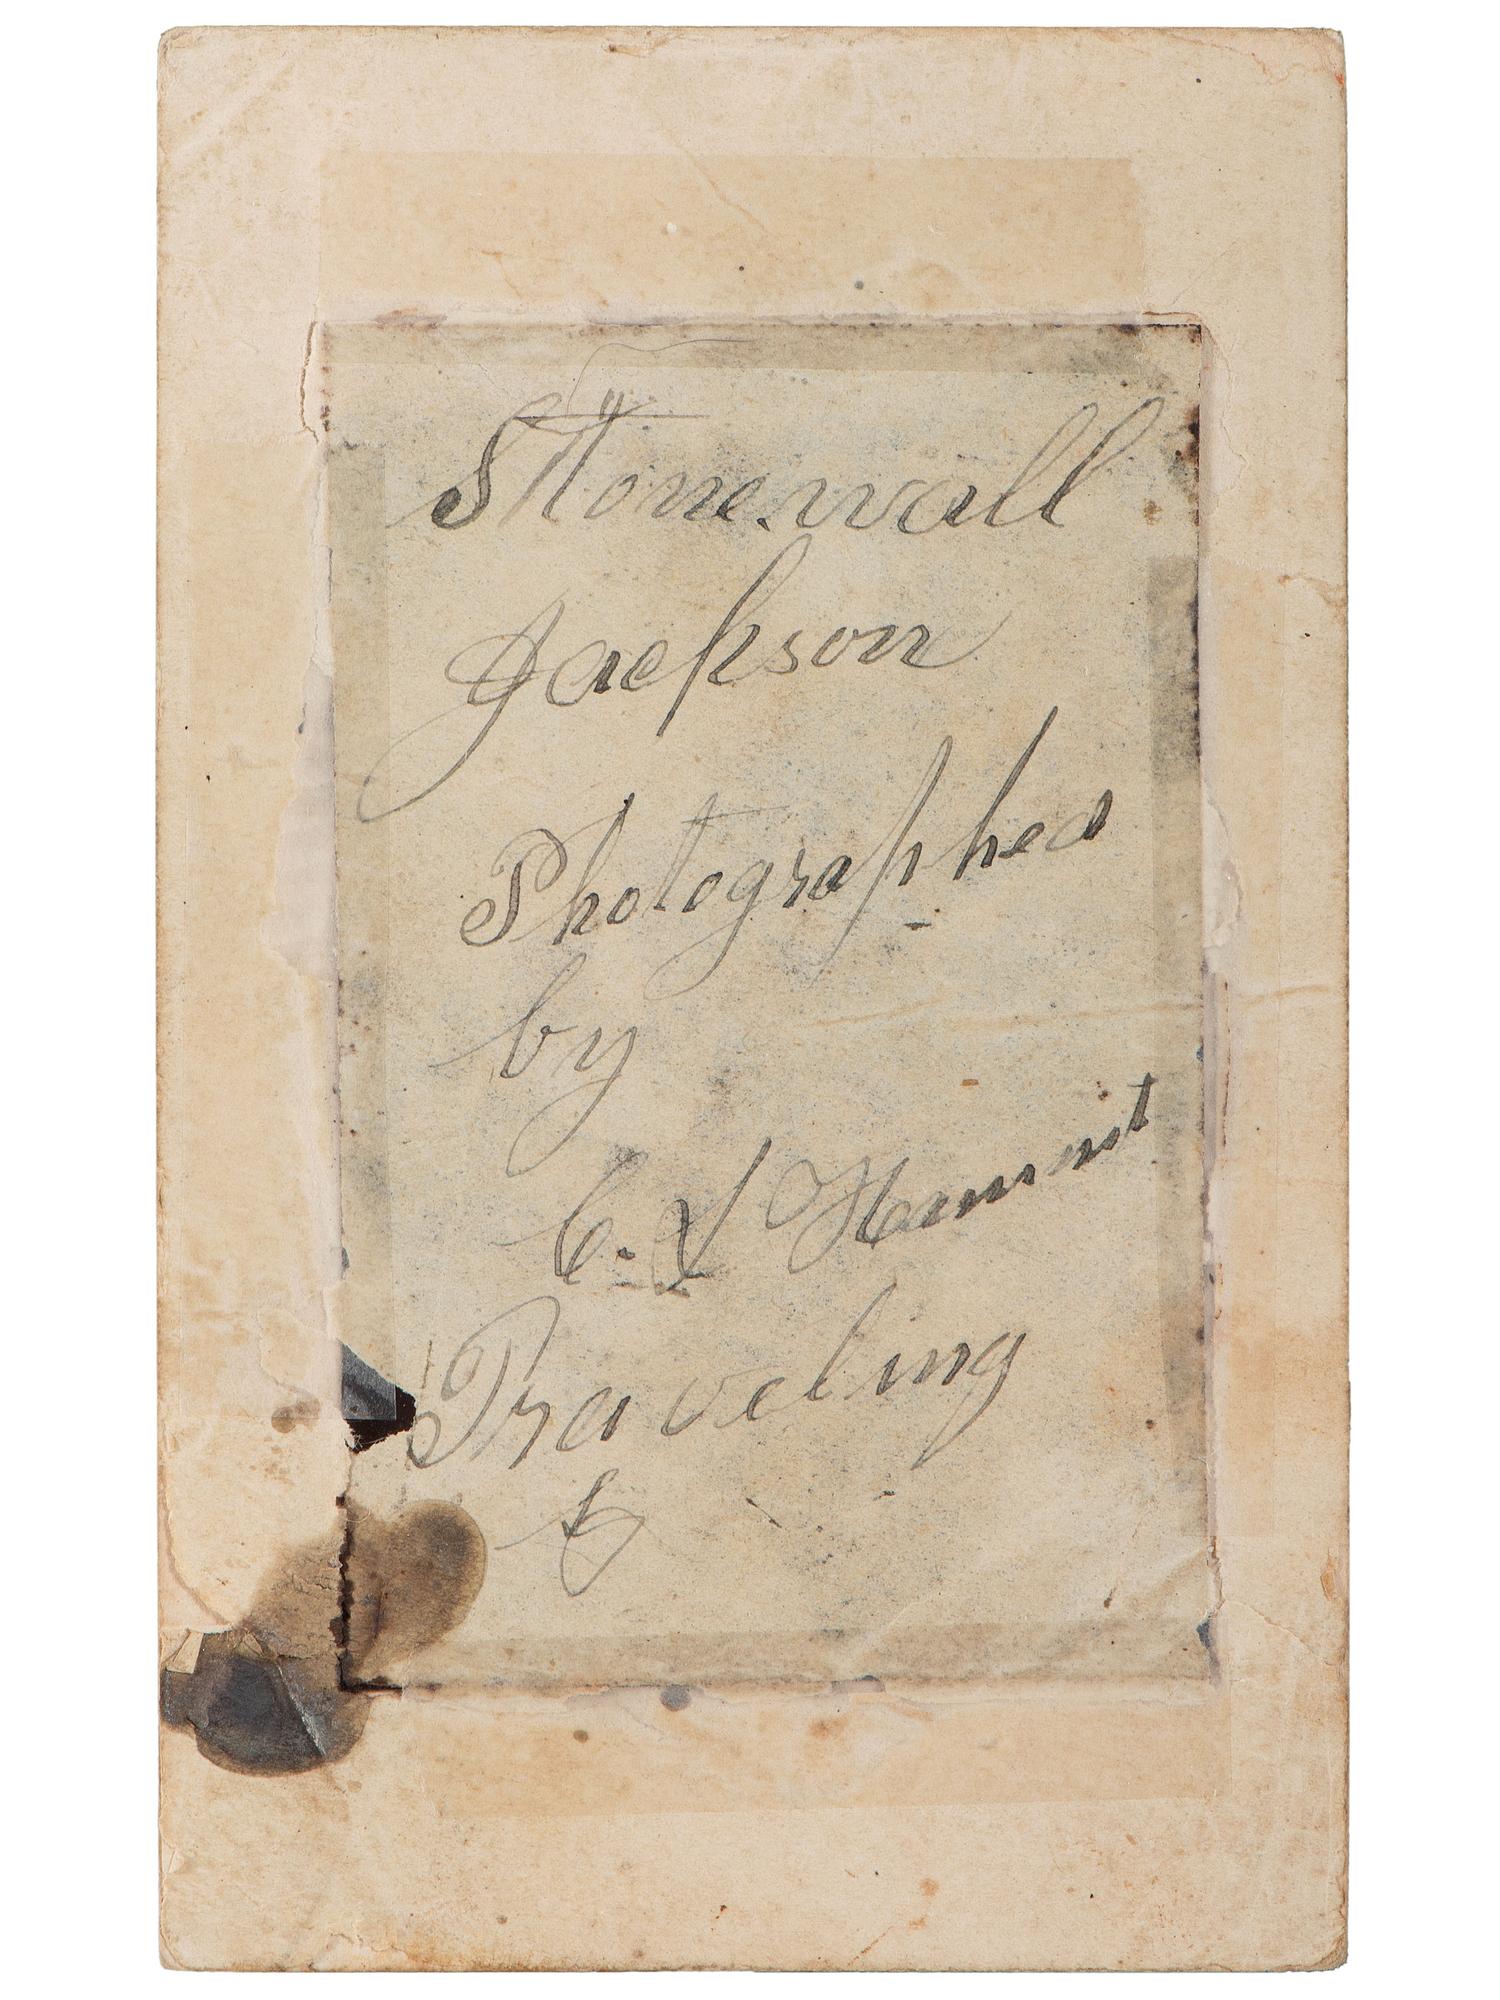 Stonewall
Jackson
Photographed
by
C. L Hamant
Traveling